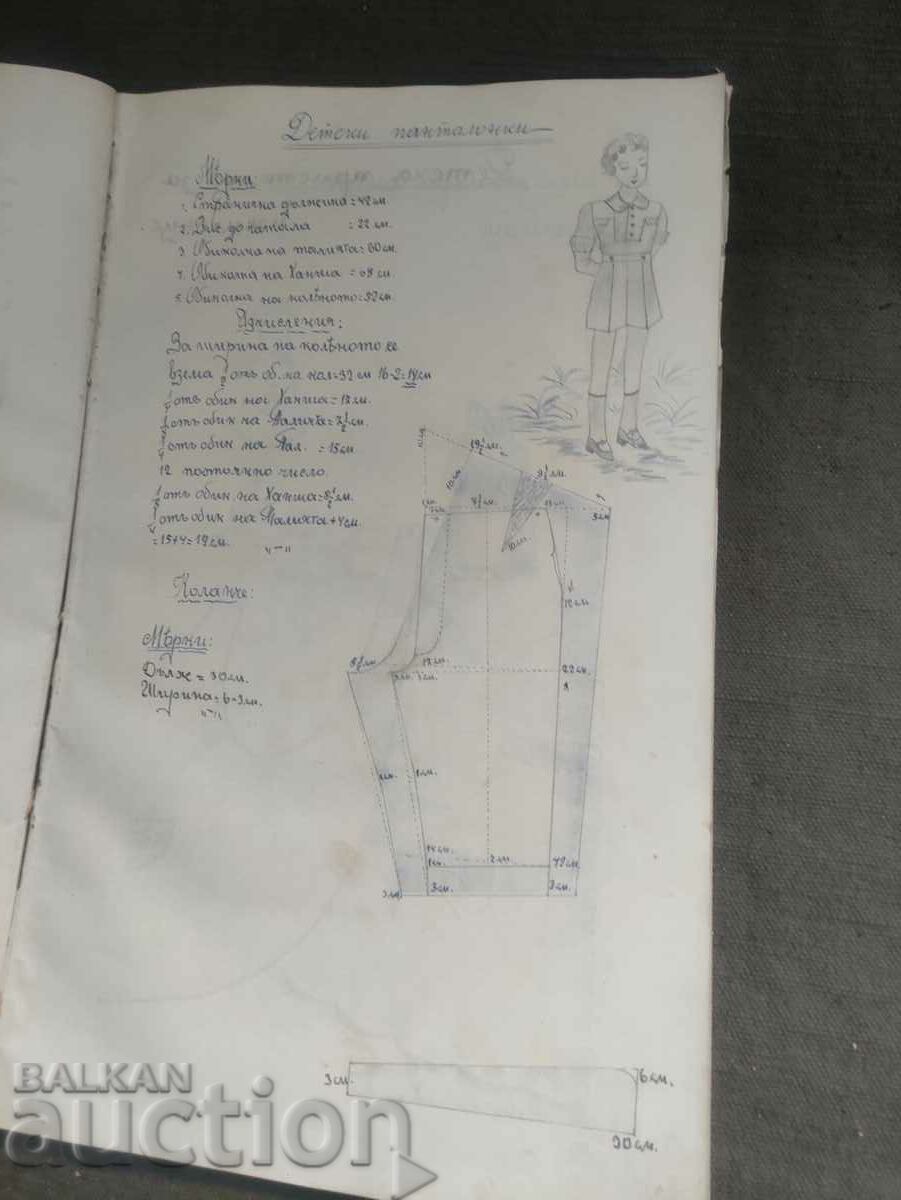 Детски панталонки
Мѣрки
1. Странична должина = 42 см.
2. Вис. до = 22 см.
3. Обиколка на талията = 60 см.
4. Обиколка на Ханша = 68 см
5. Обиколка на колѣното = 32 см.
Изчисления:
За ширина на колѣното се
взема ½ отъ об. на кол = 32 см 16-2=14 см
отъ обик на Ханша = 17 см.
отъ обик на Талията = 7½ см.
¼ отъ обик на Тал. = 15 см.
12 постоянно число
отъ обик. на Ханша = 8½ см.
¼ отъ обик на Талията + 4 см.
= 15+4 = 19 см. "–"
Коланче:
Мѣрки:
Дълж = 30 см.
Ширина = 6-3 см.
"–"
19½ см.
9½ см.
10 см.
3 см.
10 см.
12 см
8½ см
17 см.
22 см.
3 см.
1 см.
14 см.
1 см.
2 см
42 см.
3 см
3 см.
3 см.
3 см.
6 см.
30 см.
BALKAN
auction